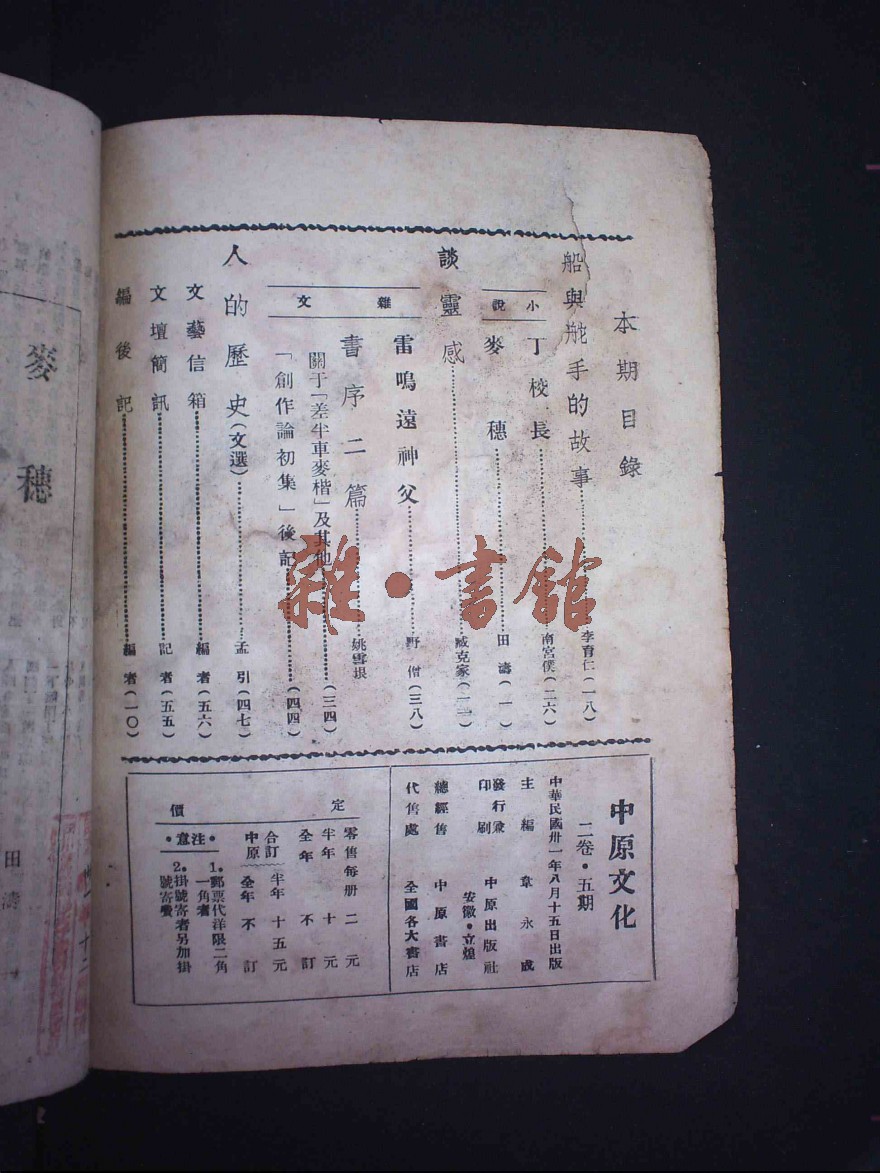 本期目錄
船與舵手的故事……李育仁(一八)
小說
丁校長……南宮僕(二六)
麥穗……田濤(一)
談靈感……臧克家(一二)
雜文
雷鳴遠神父……野僧(三八)
書序二篇……姚雪垠
關于「差半車麥稭」及其他……(三四)
「創作論初集」後記……(四四)
人的歷史(文選)……孟引(四七)
文藝信箱……編者(五六)
文壇簡訊……記者(五五)
編後記……編者(一〇)
中原文化
二卷·五期
中華民國卅一年八月十五日出版
主編 韋永成
發行兼印刷 中原出版社
安徽·立煌
總經售 中原書店
代售處 全國各大書店
定價
零售每册二元
半年十元
全年不訂
合訂中原
半年十五元
全年不訂
·注意·
1.郵票代洋限二角一角者
2.掛號寄者另加掛號寄費
雜·書館
麥穗
田濤